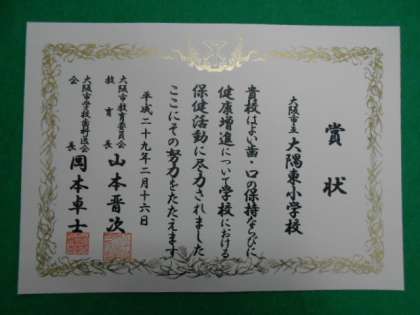 賞状
大阪市立 大隅東小学校
貴校はよい歯・口の保持ならびに
健康増進について学校における
保健活動に尽力されました
ここにその努力をたたえます
平成二十九年二月十六日
大阪市教育委員会
教育長 山本晋次
大阪市学校歯科医会
会長 岡本卓士